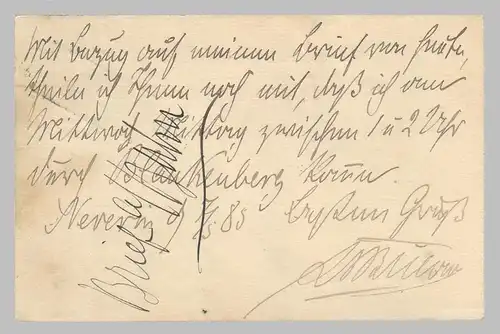 Mit Bezug auf meinen Brief von heute,
theile ich Ihnen noch mit, daß ich am
Mittwoch Mittag zwischen 1 u 2 Uhr
durch Blankenberg komme.
Neverin 85 besten Gruß
Brief